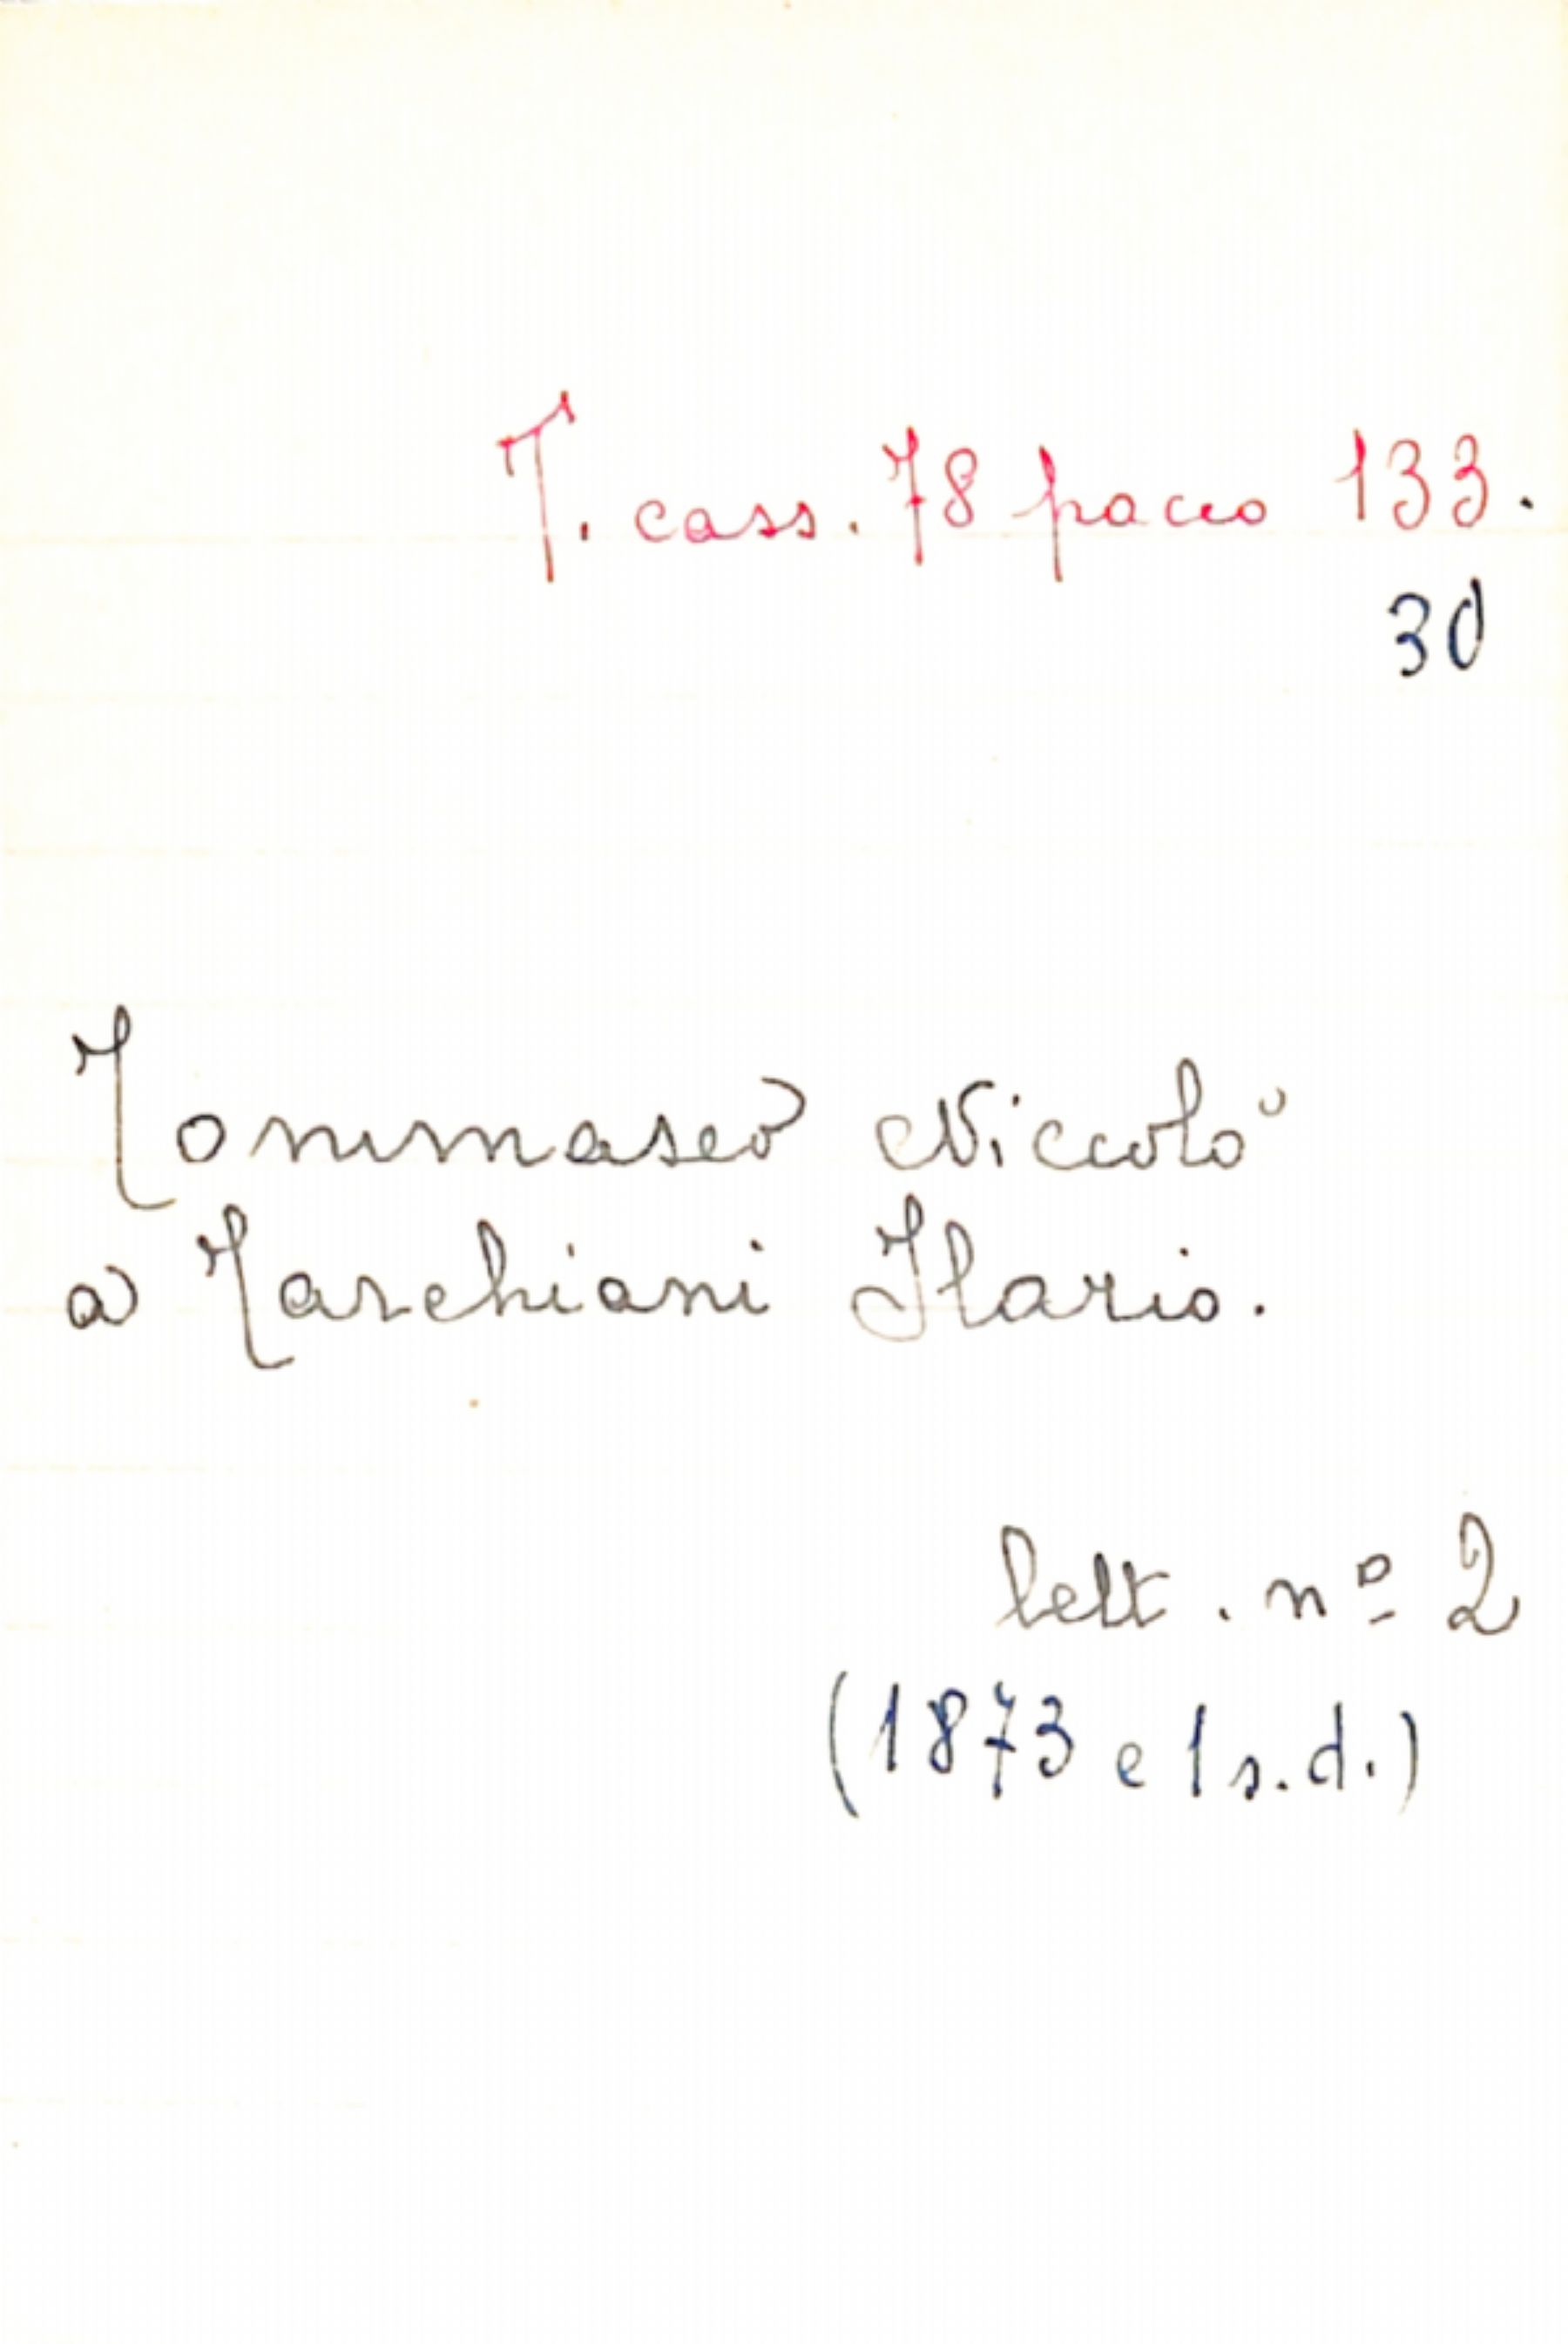 T. cass. 78 pacco 133.
30
Tommaseo Niccolò
a Tarchiani Ilario.
lett. nº 2
(1873 e 1 s.d.)